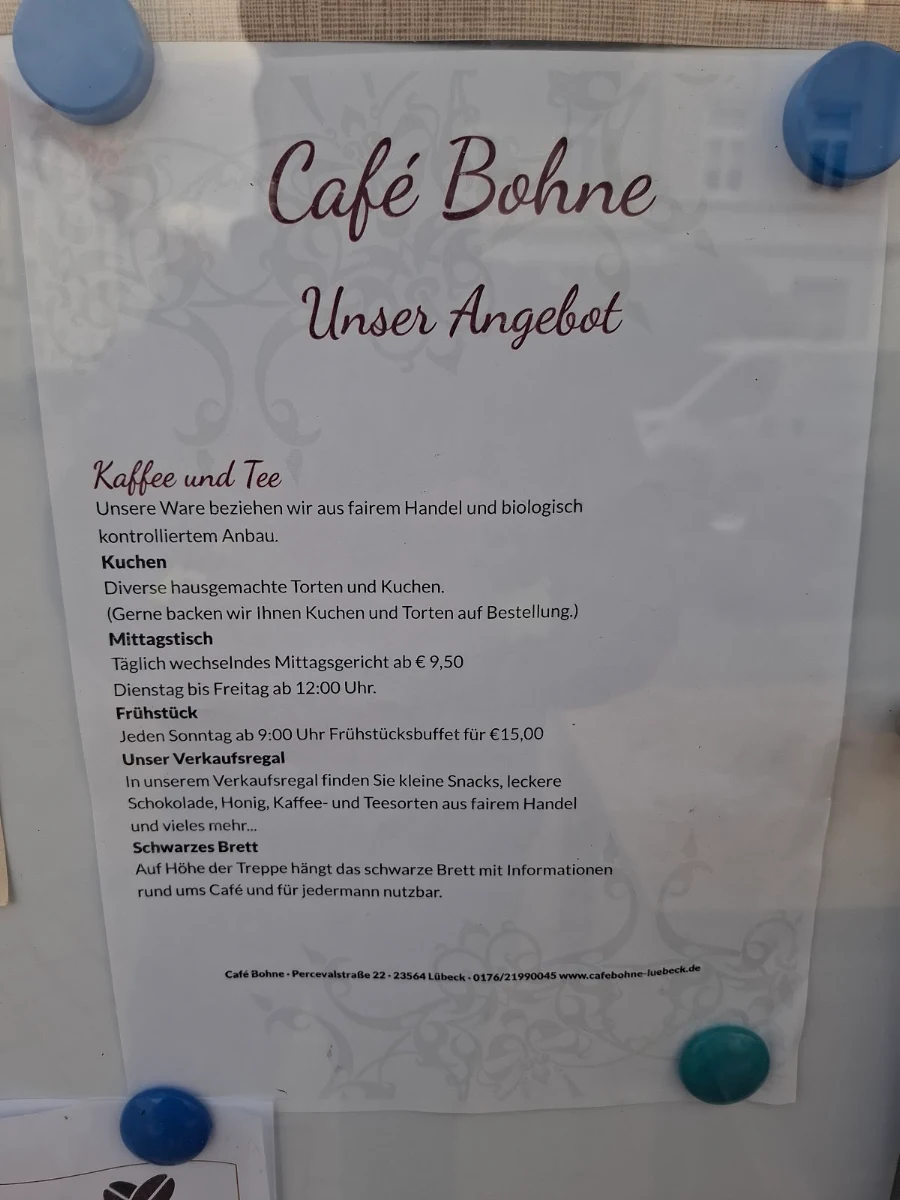 Café Bohne
Unser Angebot
Kaffee und Tee
Unsere Ware beziehen wir aus fairem Handel und biologisch
kontrolliertem Anbau.
Kuchen
Diverse hausgemachte Torten und Kuchen.
(Gerne backen wir Ihnen Kuchen und Torten auf Bestellung.)
Mittagstisch
Täglich wechselndes Mittagsgericht ab € 9,50
Dienstag bis Freitag ab 12:00 Uhr.
Frühstück
Jeden Sonntag ab 9:00 Uhr Frühstücksbuffet für €15,00
Unser Verkaufsregal
In unserem Verkaufsregal finden Sie kleine Snacks, leckere
Schokolade, Honig, Kaffee- und Teesorten aus fairem Handel
und vieles mehr...
Schwarzes Brett
Auf Höhe der Treppe hängt das schwarze Brett mit Informationen
rund ums Café und für jedermann nutzbar.
Café Bohne · Percevalstraße 22 · 23564 Lübeck · 0176/21990045 www.cafebohne-luebeck.de